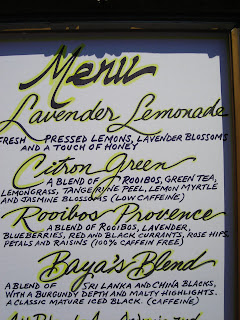 Menu
Lavender Lemonade
FRESH PRESSED LEMONS, LAVENDER BLOSSOMS
AND A TOUCH OF HONEY
Citron Green
A BLEND OF ROOIBOS, GREEN TEA,
LEMONGRASS, TANGERINE PEEL, LEMON MYRTLE
AND JASMINE BLOSSOMS (LOW CAFFEINE)
Rooibos Provence
A BLEND OF ROOIBOS, LAVENDER,
BLUEBERRIES, RED AND BLACK CURRANTS, ROSE HIPS,
PETALS AND RAISINS (100% CAFFEIN FREE)
Baya's Blend
A BLEND OF SRI LANKA AND CHINA BLACKS,
WITH A BURGUNDY DEPTH AND MALTY HIGHLIGHTS.
A CLASSIC MATURE ICED BLACK. (CAFFEINE)